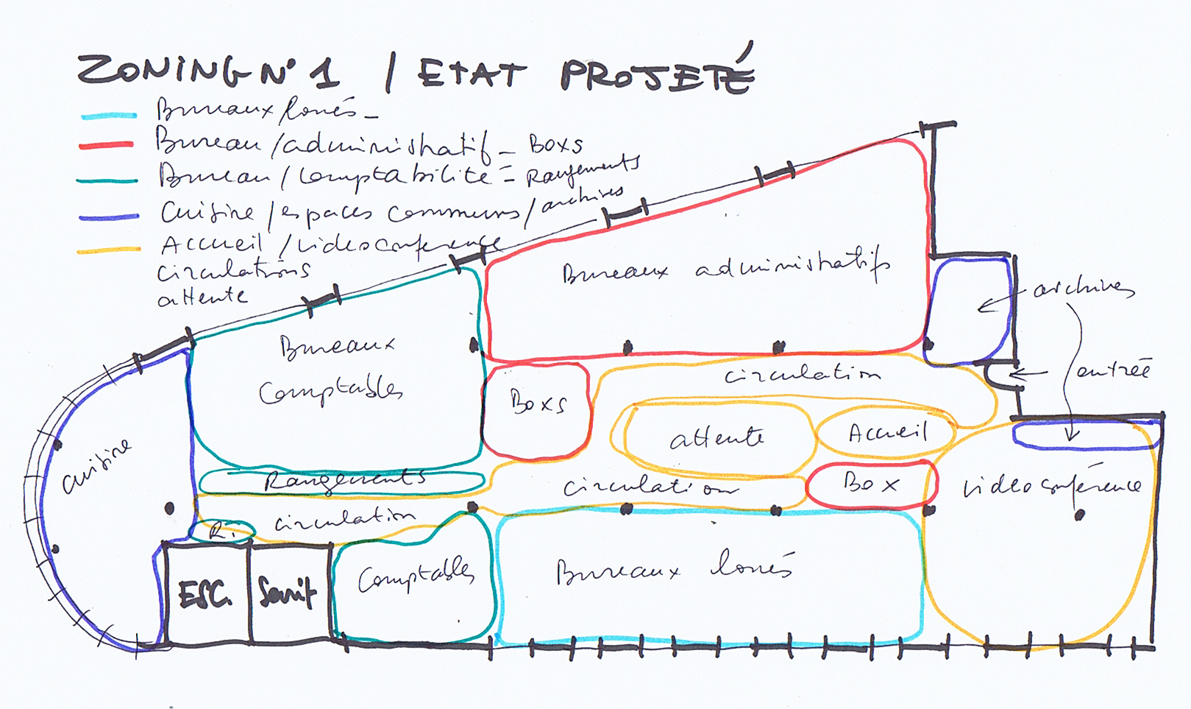 ZONING N° 1 / ETAT PROJETÉ
Bureaux loués -
Bureau / administratif - Boxs
Bureau / comptabilité = Rangements
Cuisine / espaces communs / archives
Accueil / videoconference
circulations
attente
Bureaux administratifs
archives
Bureaux
Comptables
circulation
entrée
Boxs
attente
Accueil
cuisine
Rangements
circulation
Box
videoconférence
R.
circulation
ESC.
Sanit
Comptables
Bureaux loués